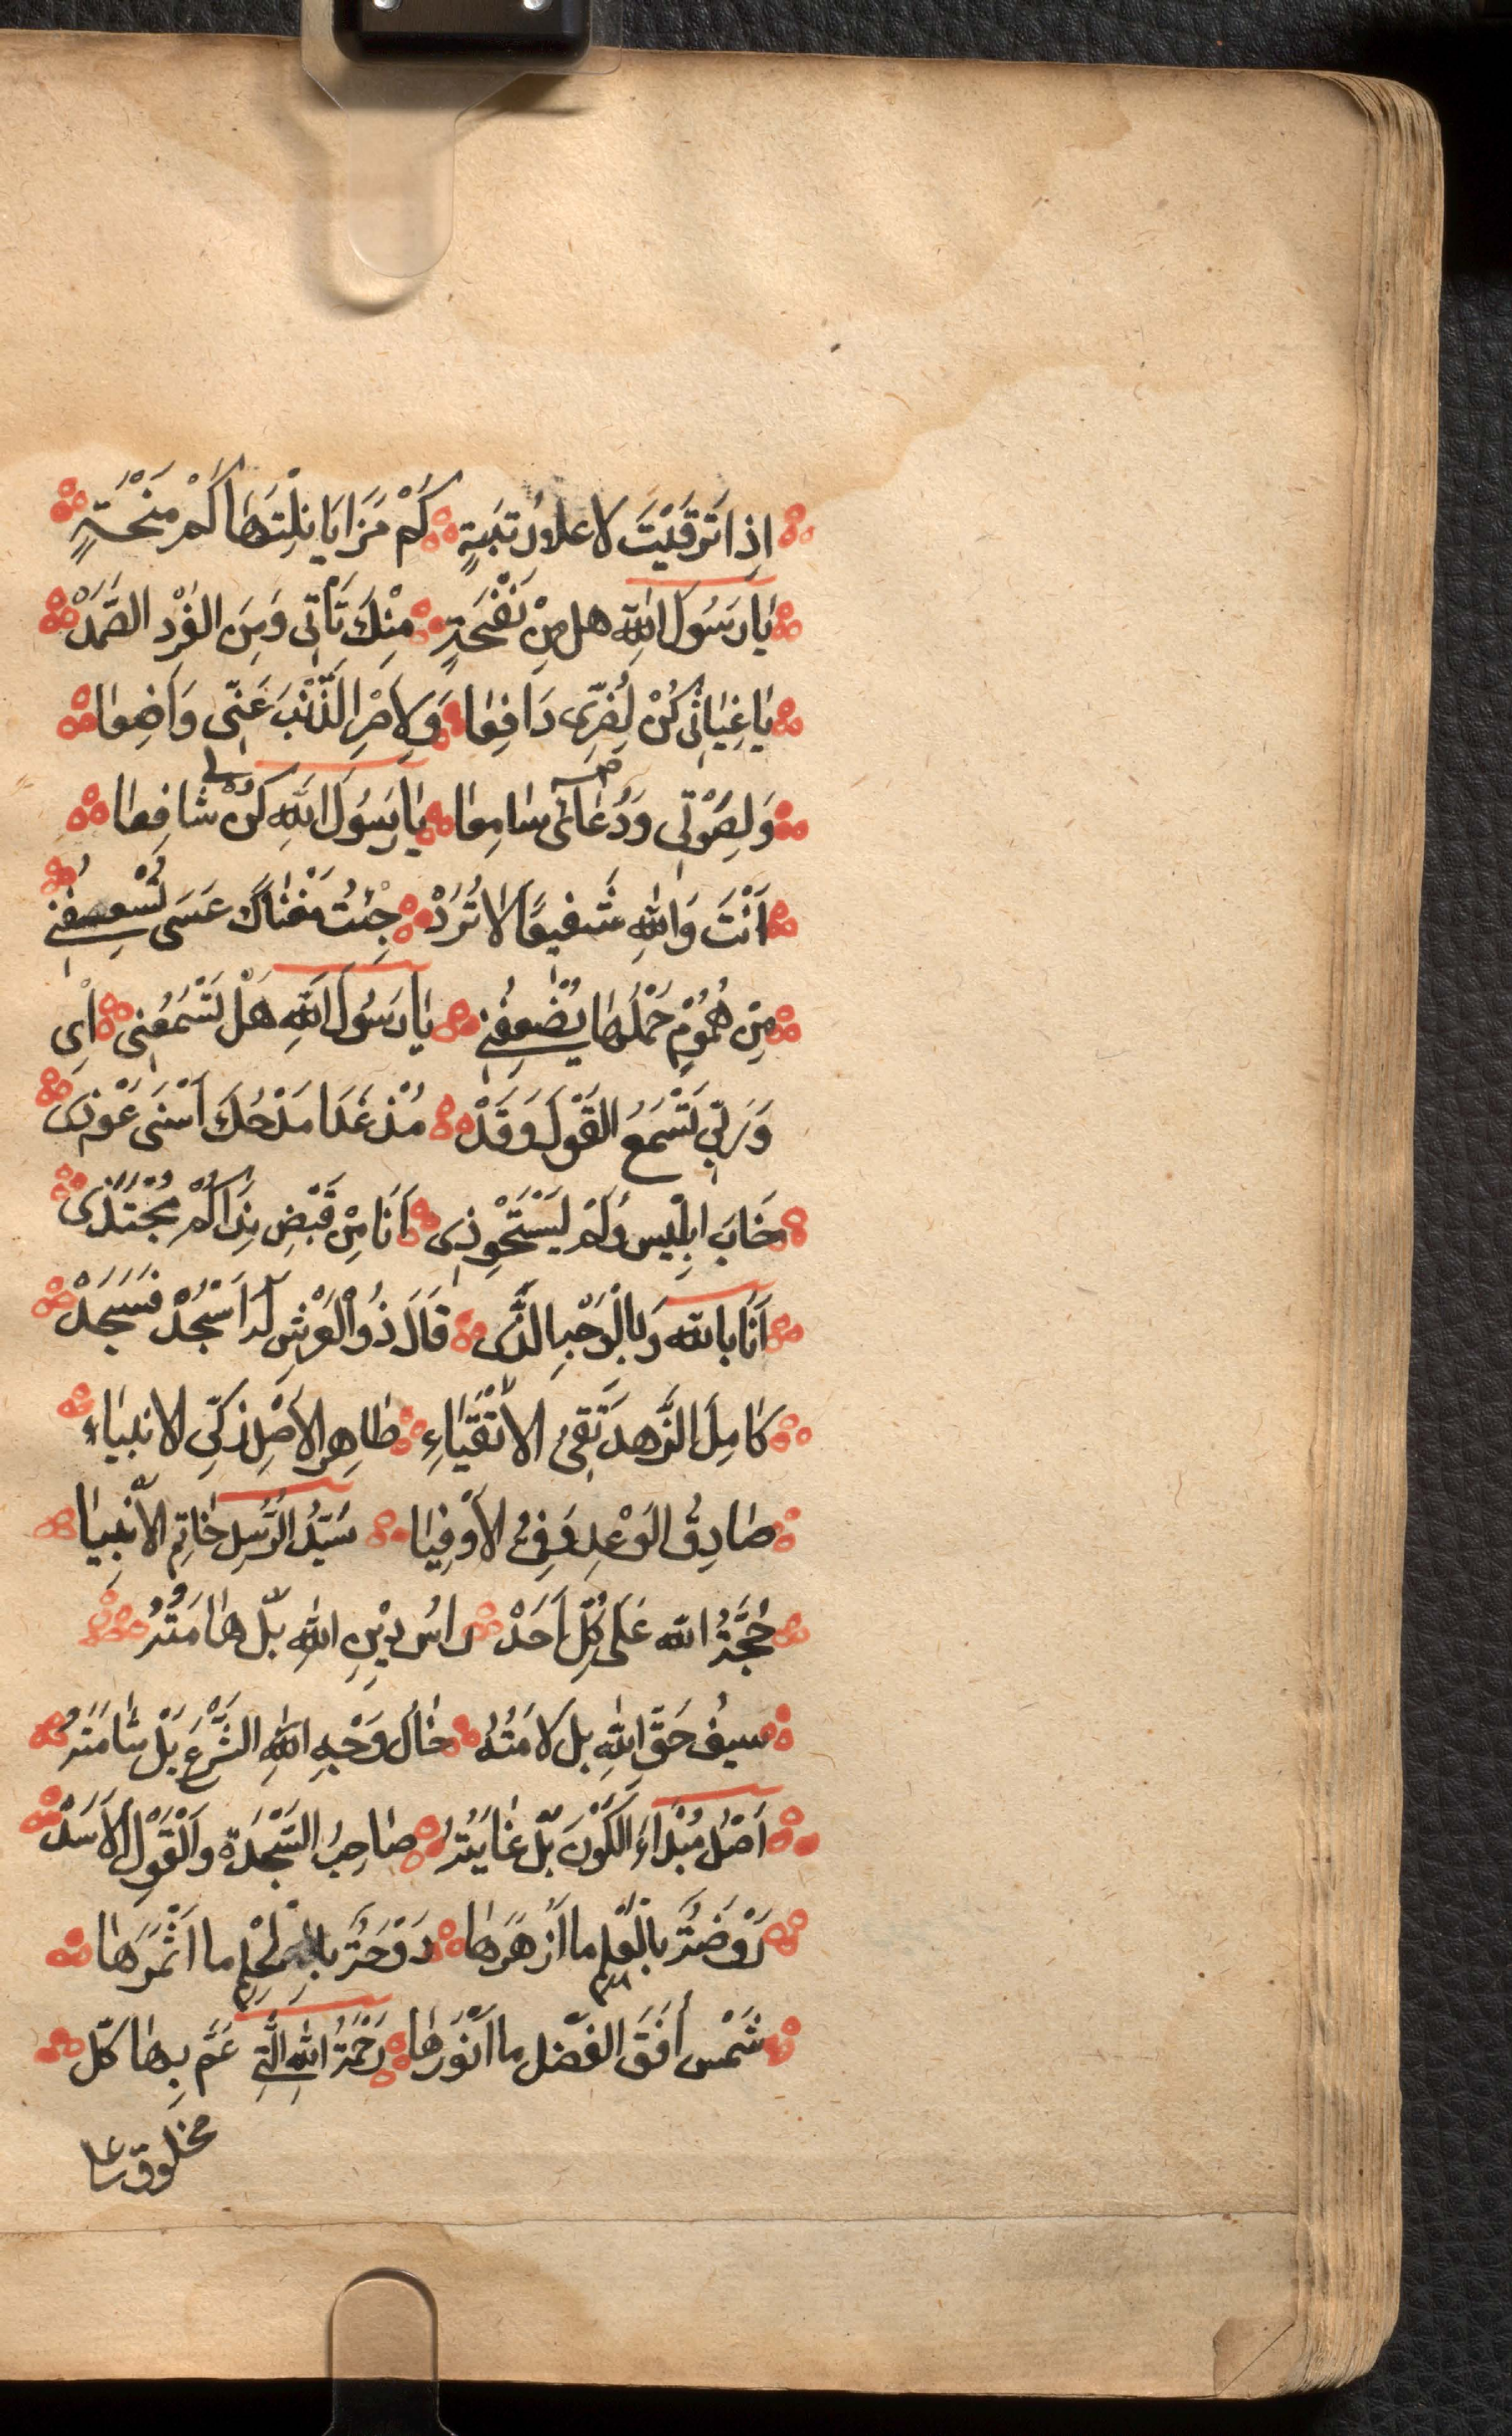 اِذا تَرَقَيْتَ لاعلا رُتبَةٍ كَمْ مَزَايَا نِلْتَهَا كَمْ مِنْحَةٍ
يَارَسُولَ اللهِ هل مِنْ نَفْحَةٍ مِنْكَ تَأتى وَمِنَ الفَرْدِ الصَّمَدْ
يَاغِيَاثِى كُنْ لِضُرِّى دَافِعا وَلِاصْرِ الذَّنْبَ عَنِّى وَاضِعا
وَلِصَوْتِى وَدُعَائى سَامِعا يَارَسُولَ اللهِ كُنْ لى شافِعا
اَنْتَ وَاللهِ شَفيعًا لاتُرَدْ جِئتُ مَغْنَاكَ عَسَى تُسْعِفُنِى
مِنْ هُمُوْمٍ حَمْلُهَا يُضْعِفُنِى يَارَسُولَ اللهِ هَلْ تَسْمَعُنِى اَى
وَرَبِّى تَسْمَعُ القَوْلَ وَقَدْ مُذْ غَدَا مَدْحُكَ اَسْنَى عَوْذى
خَابَ اِبْلِيس وَلَمْ يَسْتَحْوِذِى اَنَا مِنْ قَبْضِ نِدَاكُمْ مُجْتَدى
اَنَا بالله وَبِالْوَجْهِ الذَّى قَالَ ذُو الْعَرْشِ لَهُ اَسْجُدْ فَسَجَدْ
كَامِلَ الزُّهدِ تَقِىُ الاَتْقَيَاءِ طَاهِر الاَصْلِ زَكِّى الانبيَاءِ
صَادِقُ الوَعْدِ وَفِىُ الاَوْفِيَا سَيِّدُ الرُّسِل خَاتِم الاَنْبِيَا
حُجَّةُ الله عَلَى كُلِّ اَحَدْ رَاسُ دِيْنِ اللهِ بلّ هَامَتُهُ
سيفُ حَقِّ اللهِ بل لامَتُهُ خَالُ وَجْهِ اللهِ الشَّرْعِ بَلْ شَامَتُهُ
اَصْلُ مَبْدَاءَ الكَوْنَ بَلّ غَايَتُهُ صَاحِبُ السَّجْدَة وَالْقَوْلِ الاَسَدْ
رَوْضَةُ بالْعِلْمِ ما اَزْهَرَهَا دَوْحَةٌ بالْحِلْمِ ما اَثْمَرَهَا
شَمْس اُفَقَ الفَضْل ما اَنْوَرَهَا رَحْمَةُ اللهِ الَّتِى عَمَّ بِهَا كلّ
مخلوق